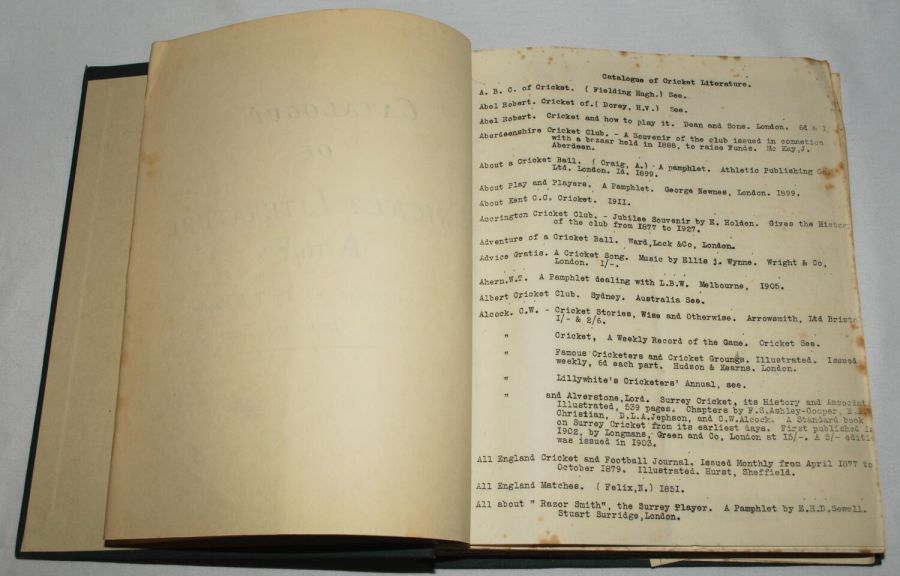 CATALOGUE
OF
A
F
Catalogue of Cricket Literature.
A. B. C. of Cricket. ( Fielding Hugh.) See.
Abel Robert. Cricket of.( Dorey, H.V.) See.
Abel Robert. Cricket and how to play it. Dean and Sons. London. 6d & I/
Aberdeenshire Cricket Club. - A Souvenir of the club issued in connetion
with a bazaar held in I888, to raise Funds. Mc Kay,J.
Aberdeen.
About a Cricket Ball. ( Craig, A.) A pamphlet. Athletic Publishing
Ltd. London. Id. I899.
About Play and Players. A Pamphlet. George Newnes, London. I899.
About Kent C.C. Cricket. I9II.
Accrington Cricket Club. - Jubilee Souvenir by E. Holden. Gives the
of the club from I877 to I927.
Adventure of a Cricket Ball. Ward,Lock &Co, London.
Advice Gratis. A Cricket Song. Music by Ellis j. Wynne. Wright & Co,
London. I/-.
Ahern.W.T. A Pamphlet dealing with L.B.W. Melbourne, I905.
Albert Cricket Club. Sydney. Australia See.
Alcock. C.W. - Cricket Stories, Wise and Otherwise. Arrowsmith, Ltd
I/- & 2/6.
" Cricket, A Weekly Record of the Game. Cricket See.
" Famous Cricketers and Cricket Grounds. Illustrated. Issued
weekly, 6d each part. Hudson & Kearns. London.
" Lillywhite's Cricketers' Annual, see.
" and Alverstone,Lord. Surrey Cricket, its History and
Illustrated, 539 pages. Chapters by F.S.Ashley-Cooper,
Christian, D.L.A.Jephson, and C.W.Alcock. A Standard book
on Surrey Cricket from its earliest days. First published
I902, by Longmans, Green and Co, London at I5/-. A 5/-
was issued in I903.
All England Cricket and Football Journal. Issued Monthly from April I877 to
October I879. Illustrated. Hurst, Sheffield.
All England Matches. ( Felix,N.) I85I.
All about " Razor Smith", the Surrey Player. A Pamphlet by E.H.D.Sewell.
Stuart Surridge,London.